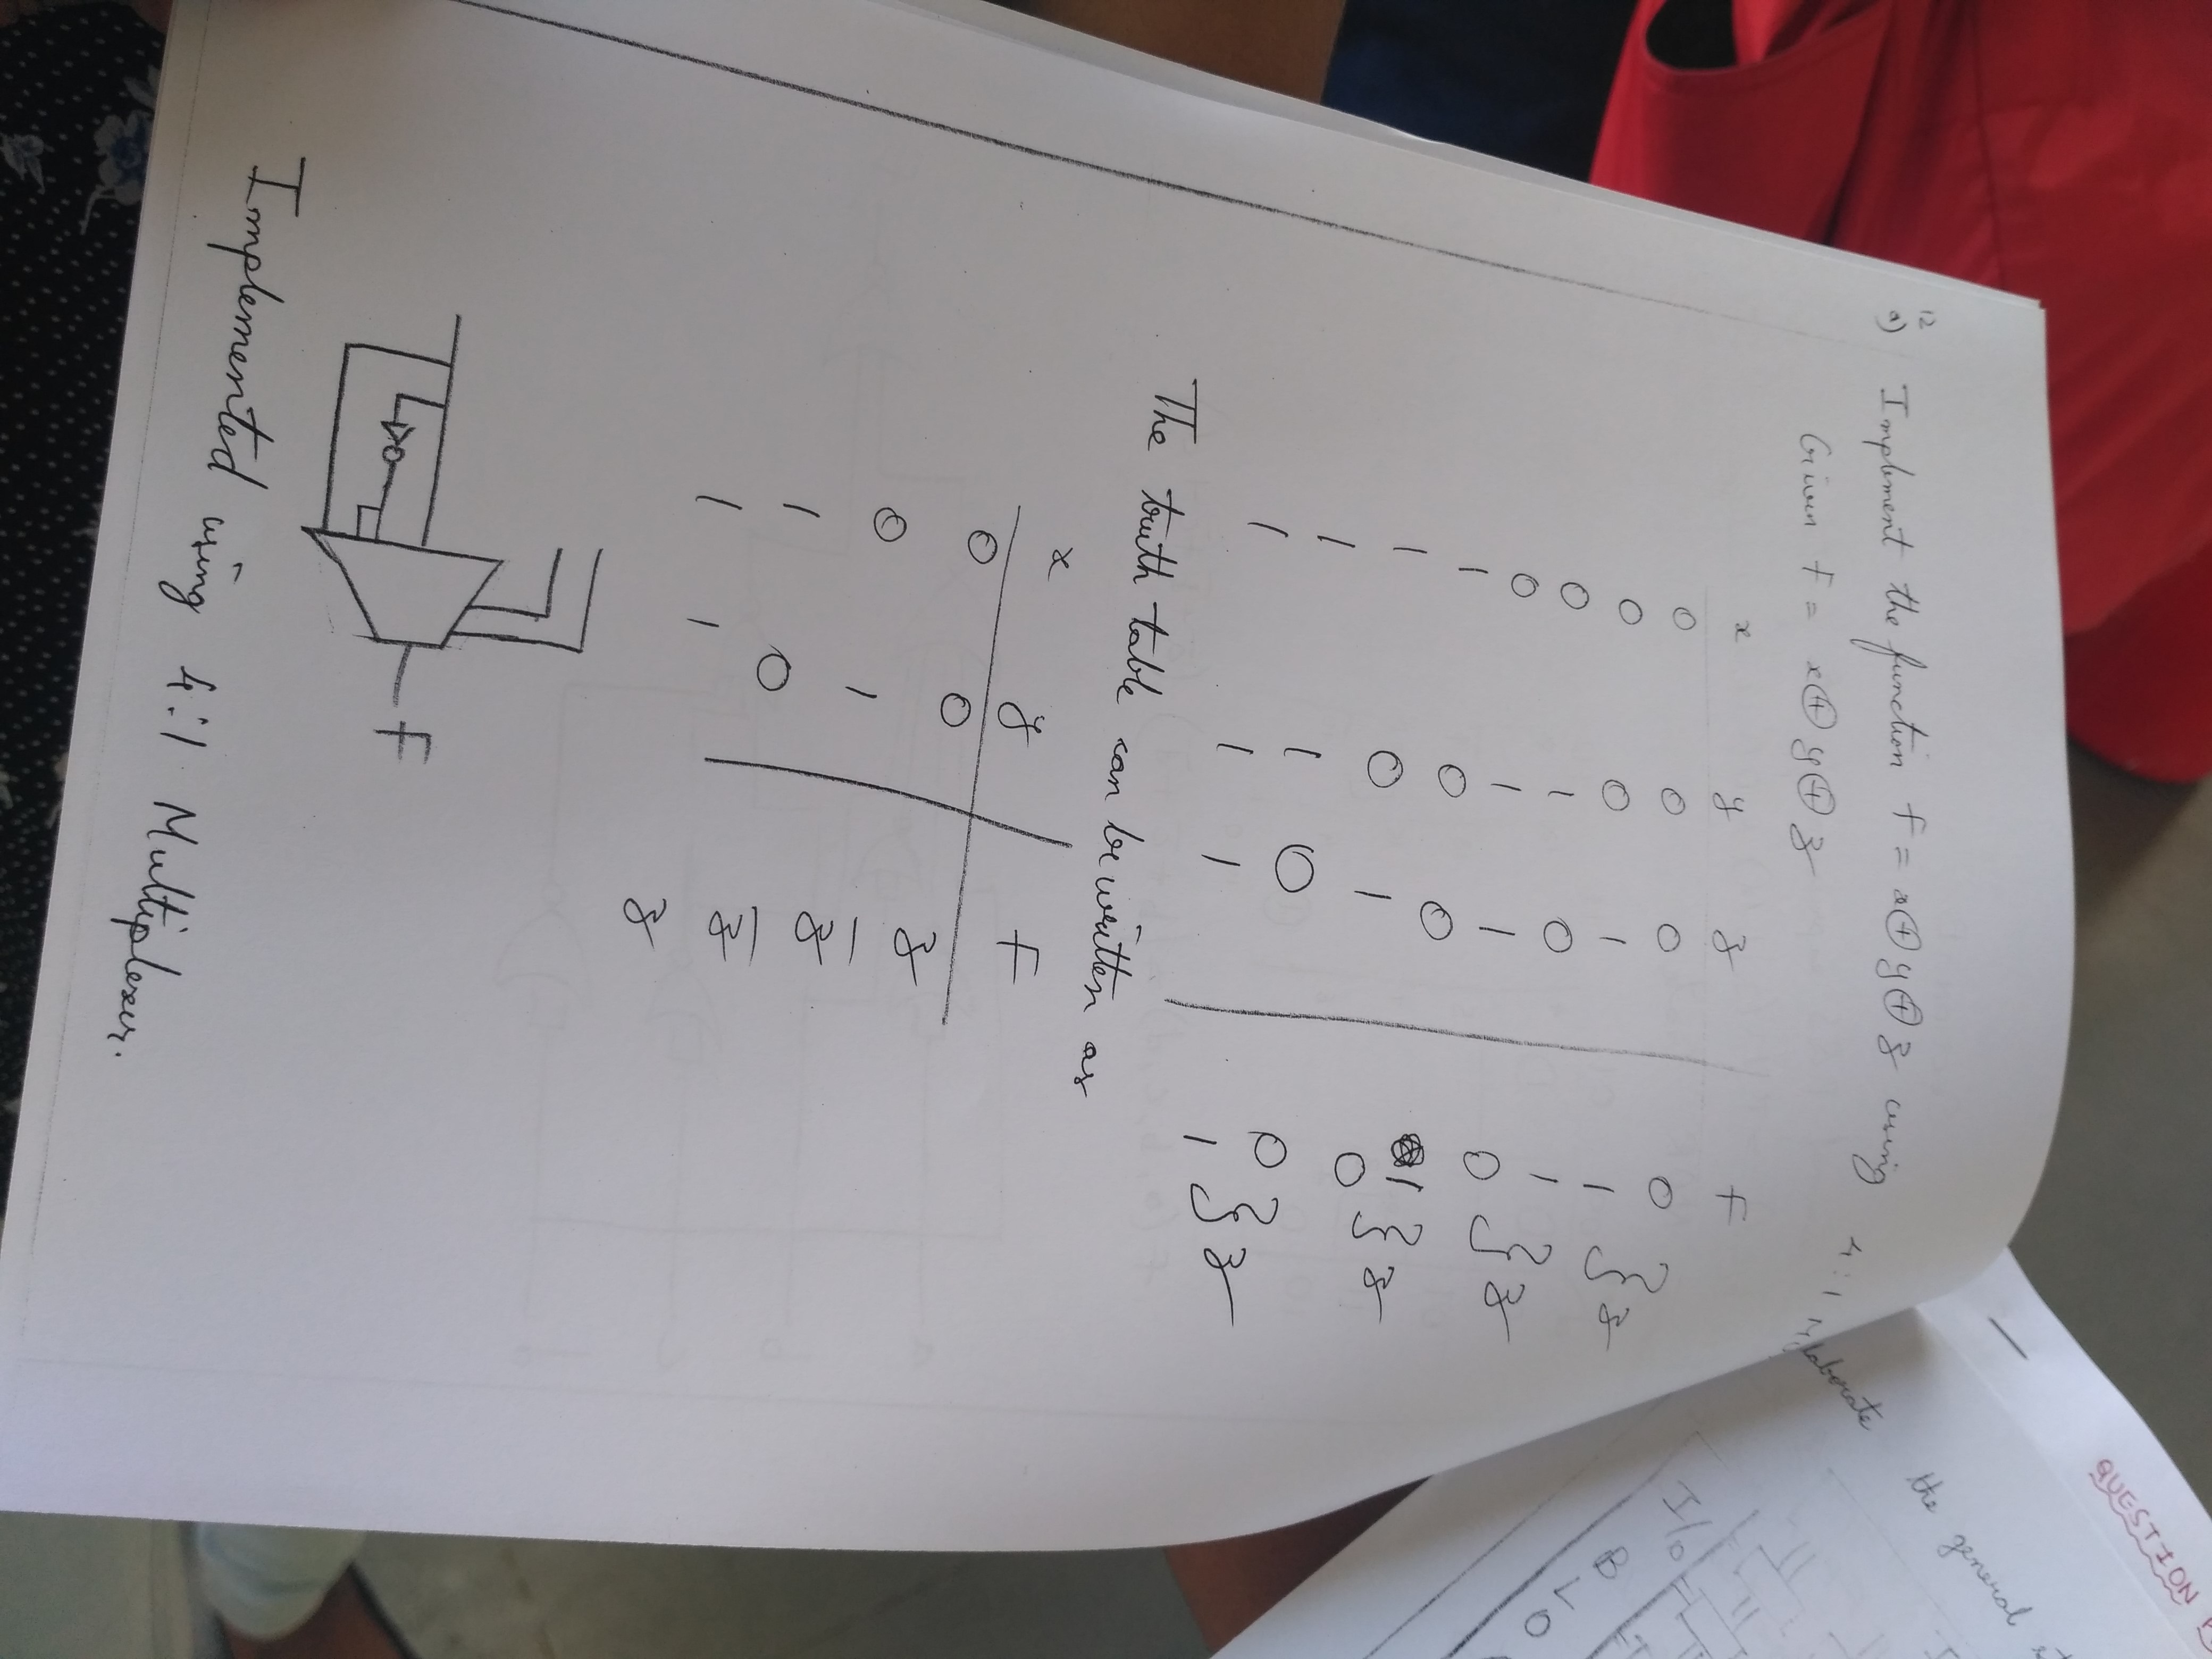 12
a) Implement the function F = x⊕y⊕z using 4:1 M
Given F = x⊕y⊕z
x y z F
0 0 0 0 } z
0 0 1 1
0 1 0 1 } z
0 1 1 0
1 0 0 1 } z
1 0 1 0
1 1 0 0 } z
1 1 1 1
The truth table can be written as
x y F
0 0 z
0 1 z̅
1 0 z̅
1 1 z
F
Implemented using 4:1 Multiplexer.
QUESTION
laborate the general
I/O
B
L
O